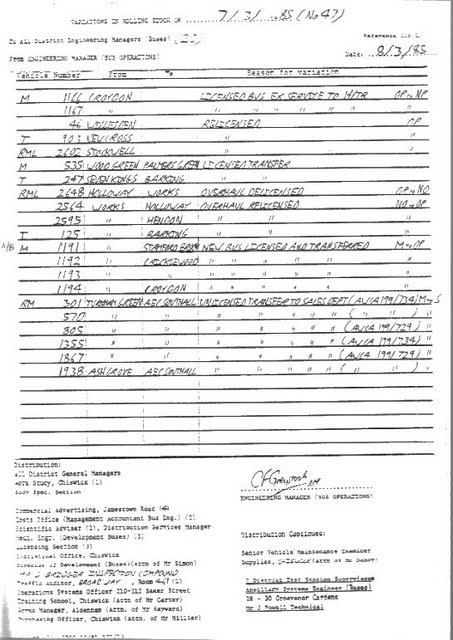 VARIATIONS IN ROLLING STOCK ON 7/3/85 (No 43)
To All District Engineering Managers (Buses)
From ENGINEERING MANAGER (BUS OPERATIONS)
Reference
Date: 8/3/85
Vehicle Number From To Reason for variation
M 1166 CROYDON LICENSED BUS EX SERVICE TO H/TR OP to NP
1167 " " " " "
46 WILLESDEN RELICENSED OP
T 903 NEW CROSS "
RML 2602 STOCKWELL "
M 535 WOOD GREEN PALMERS GREEN LICENSED TRANSFER
T 247 SEVEN KINGS BARKING " "
RML 2648 HOLLOWAY WORKS OVERHAUL DELICENSED OP to NO
2564 WORKS HOLLOWAY OVERHAUL RELICENSED NO to OP
2595 " HENDON " " "
T 125 " BARKING " " "
A/B M 1191 STAMFORD BROOK NEW BUS LICENSED AND TRANSFERRED M to OP
1192 CRICKLEWOOD " " " " "
1193 " " " " " "
1194 CROYDON " " " " "
RM 301 TURNHAM GREEN AEC SOUTHALL UNLICENSED TRANSFER TO SALES DEPT (AW/CA 199/734) M to S
570 " " " " " " " ( " " ) "
805 " " " " " " " (AW/CA 199/729) "
1355 " " " " " " " (AW/CA 199/734) "
1867 " " " " " " " (AW/CA 199/729) "
1938 ASH GROVE AEC SOUTHALL " " " " " ( " ) "
Distribution:
All District General Managers
Work Study, Chiswick (2)
Section
ENGINEERING MANAGER (BUS OPERATIONS)
Commercial Advertising, Jamestown Road
Costs Office (Management Accountant Bus Eng.) (2)
Scientific Adviser (2), Distribution Services Manager
Mech. Engr. (Development Buses) (3)
Licensing Section (3)
Office, Chiswick
Director of Development (Buses) (attn of Mr Simon)
INSPECTION COMPOUND
Traffic Auditor, BROADWAY, Room
Operations Systems Officer 110-112 Baker Street
Training School, Chiswick (Attn of Mr Carter)
Works Manager, Aldenham (Attn. of Mr Hayward)
Purchasing Officer, Chiswick (Attn of Mr Hillier)
Distribution Continues:
Senior Vehicle Maintenance Examiner
Supplies, Chiswick
7 District Test Station Supervisors
Ancillary Systems Engineer (Buses)
28 - 30 Grosvenor Gardens
Mr J Powell Technical